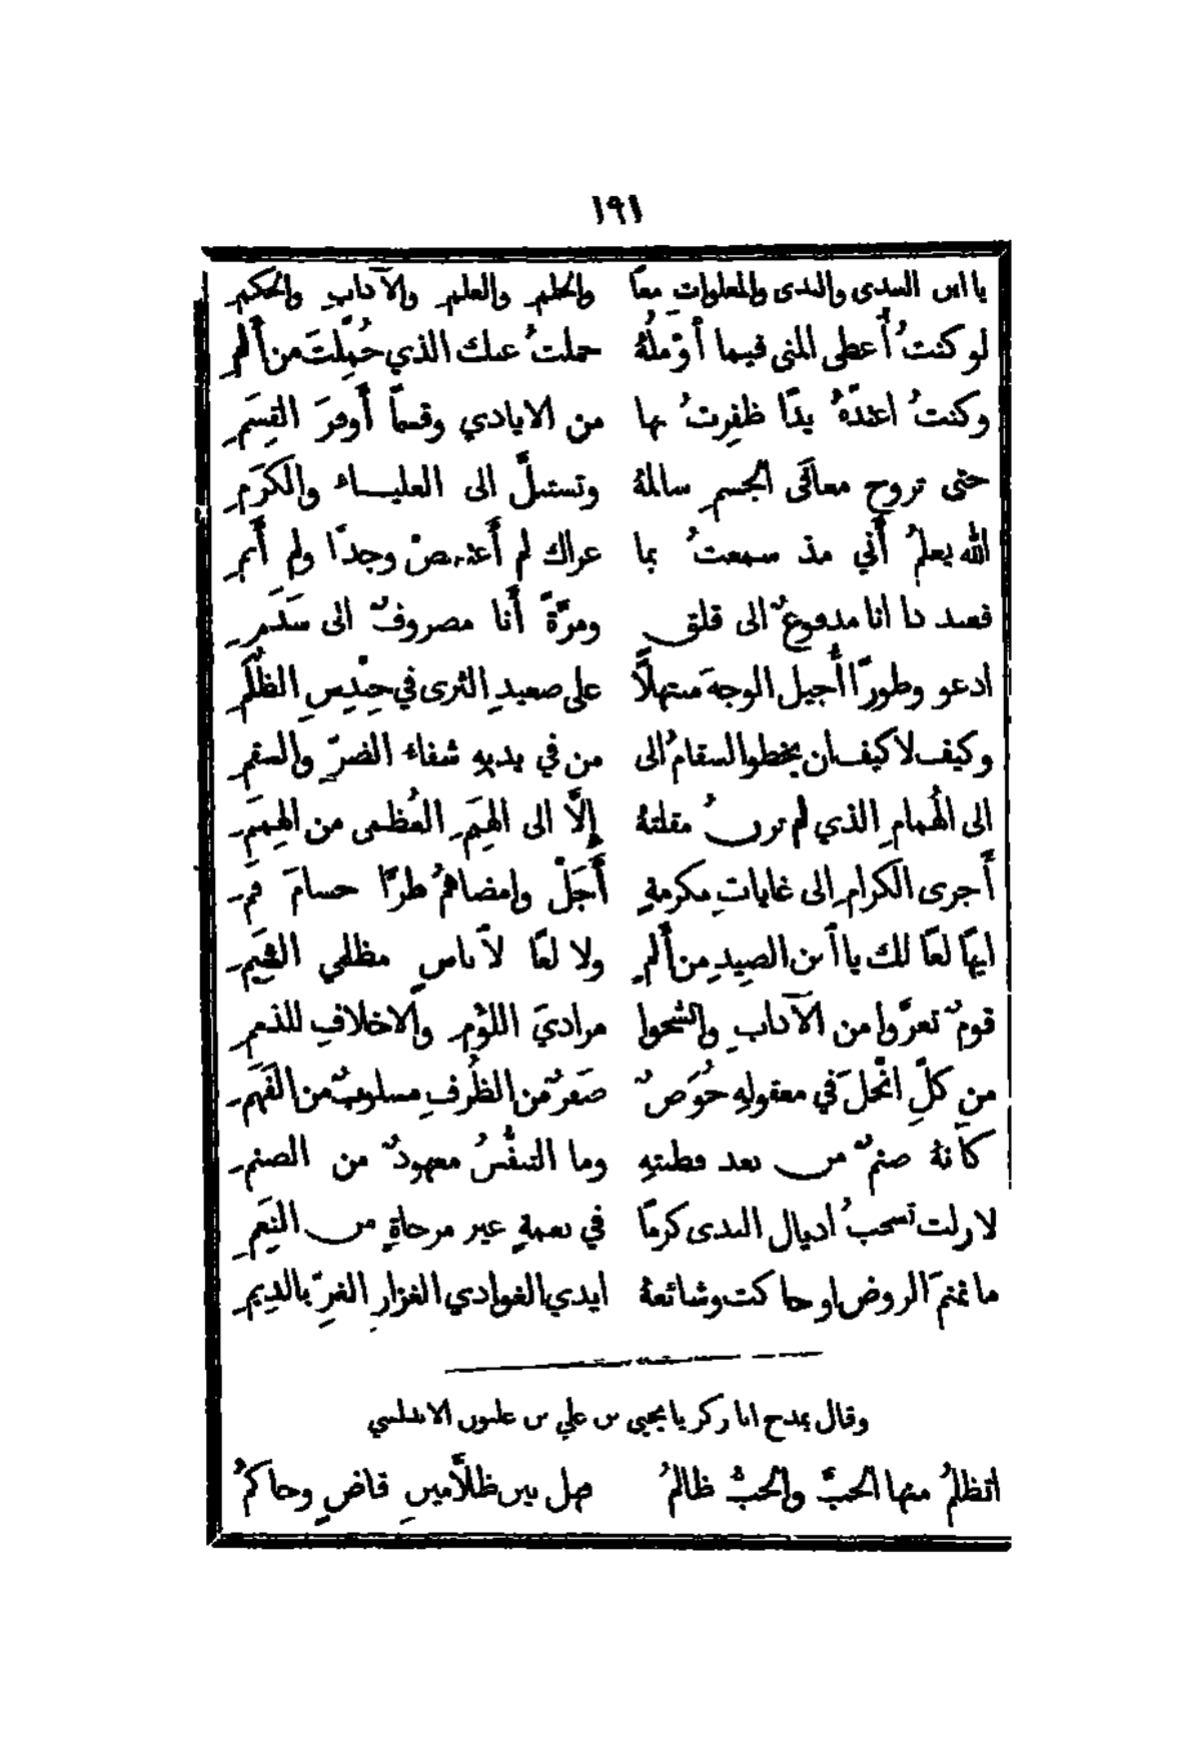 ١٩١
يا ابن السدى والندى والمعلوات معًا والحلم والعلم والآداب والحكم
لو كنتُ أعطى المنى فيما أؤمّلهُ حملتُ عنك الذي حُمِّلتَ من ألم
وكنتُ اعتدّهُ يدًا ظفرتُ بها من الايادي وقسمًا أوفرَ القِسَمِ
حتى تروح معافَى الجسمِ سالمهُ وتستبلَّ الى العلياء والكرَمِ
الله يعلمُ أني مذ سمعتُ بما عراك لم أغتمض وجدًا ولم أنمِ
فعند ذا انا مدفوعٌ الى قلقٍ ومرّةً أنا مصروفٌ الى سَدَمِ
ادعو وطورًا أجيل الوجهَ مبتهلًا على صعيدِ الثرى في حِنْدِسِ الظلَمِ
وكيف لا كيف ان يخطو السقامُ الى من في يديهِ شفاء الضرّ والسقمِ
الى الهُمامِ الذي لم ترنُ مقلتهُ إلَّا الى الهِمَمِ العُظمى من الهِمَمِ
أجرى الكرامِ الى غاياتِ مكرمةٍ أَجَلْ وامضاهمُ طرًّا حسامَ فَمِ
ايهًا لعًا لك يا آبن الصِيدِ من ألمٍ ولا لعًا لأناسٍ مظلمي الشِيَمِ
قومٌ تعرّوا من الآدابِ واتشحوا مراديَ اللؤمِ والاخلافِ للذممِ
من كلّ انْحلَ في معقولهِ خُوَصٌ صَفرٌ من الظَرفِ مسلوبٌ من الفَهَمِ
كأنهُ صنمٌ من بعد فطنتهِ وما التنفُّسُ معهودٌ من الصنمِ
لا زلت تسحبُ اذيال الندى كرمًا في نعمةٍ غير مزجاةٍ من النِعَمِ
ما نمنمَ الروض او حاكت وشائعهُ ايدي الغوادي الغزارِ الغرّ بالدِيَمِ
وقال يمدح ابا زكريا يحيى بن علي بن غلبون الاندلسي
اتظلمُ منها الحبَّ والحبُّ ظالمُ فهل بين ظلَّامينِ قاضٍ وحاكمُ